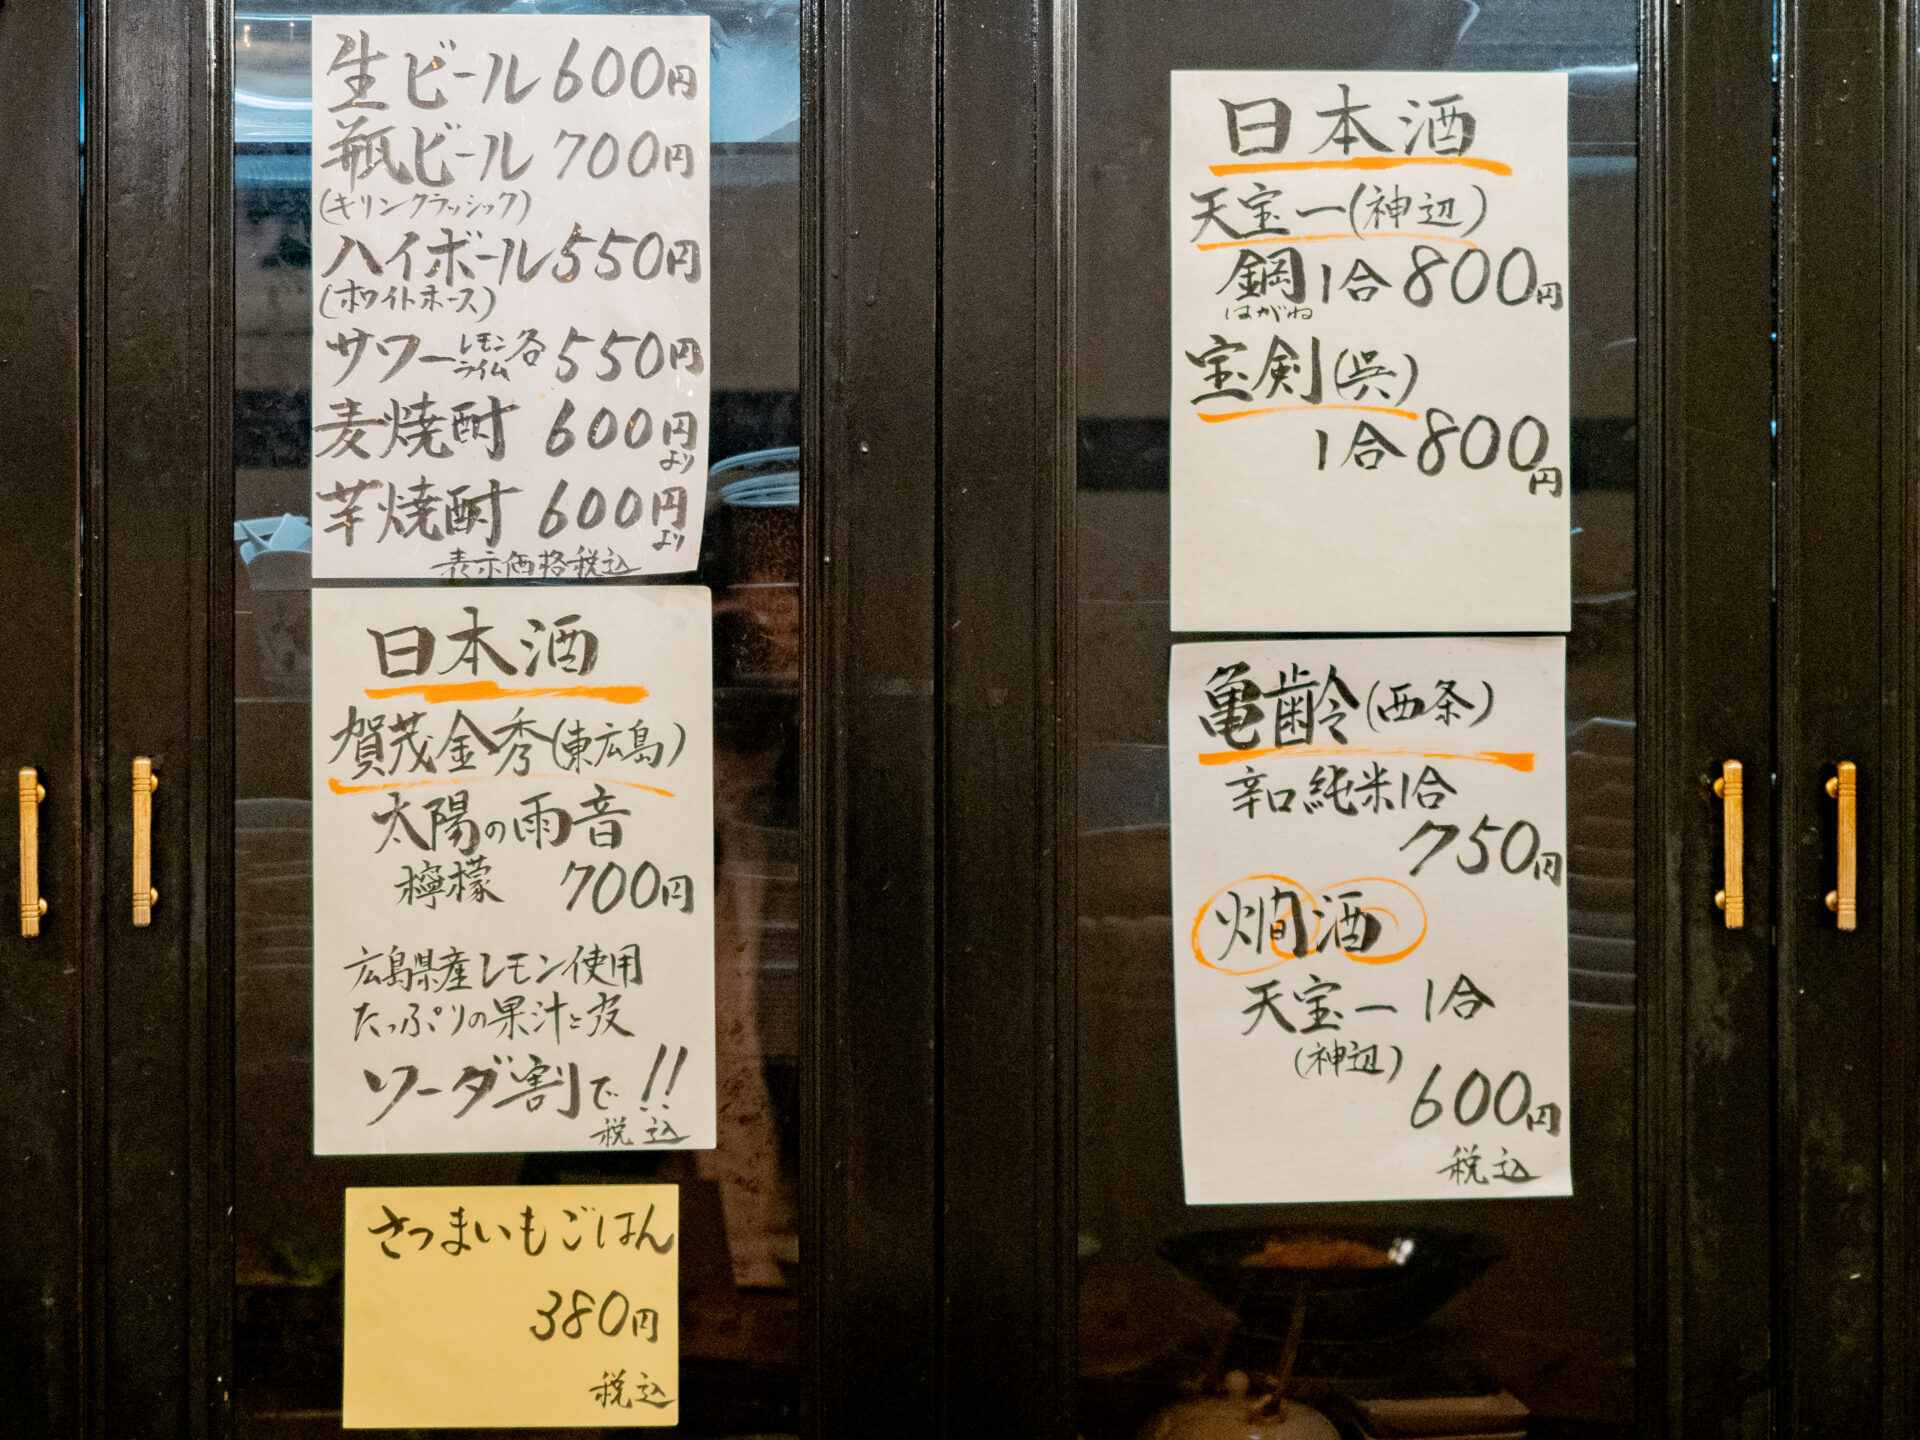 生ビール 600円
瓶ビール 700円
(キリンクラッシック)
ハイボール 550円
(ホワイトホース)
サワー レモン ライム 各 550円
麦焼酎 600円より
芋焼酎 600円より
表示価格税込
日本酒
賀茂金秀(東広島)
太陽の雨音
檸檬 700円
広島県産レモン使用
たっぷりの果汁と皮
ソーダ割で!!
税込
さつまいもごはん
380円
税込
日本酒
天宝一(神辺)
鋼 1合 800円
はがね
宝剣(呉)
1合 800円
亀齢(西条)
辛口純米1合
750円
燗酒
天宝一 1合
(神辺)
600円
税込